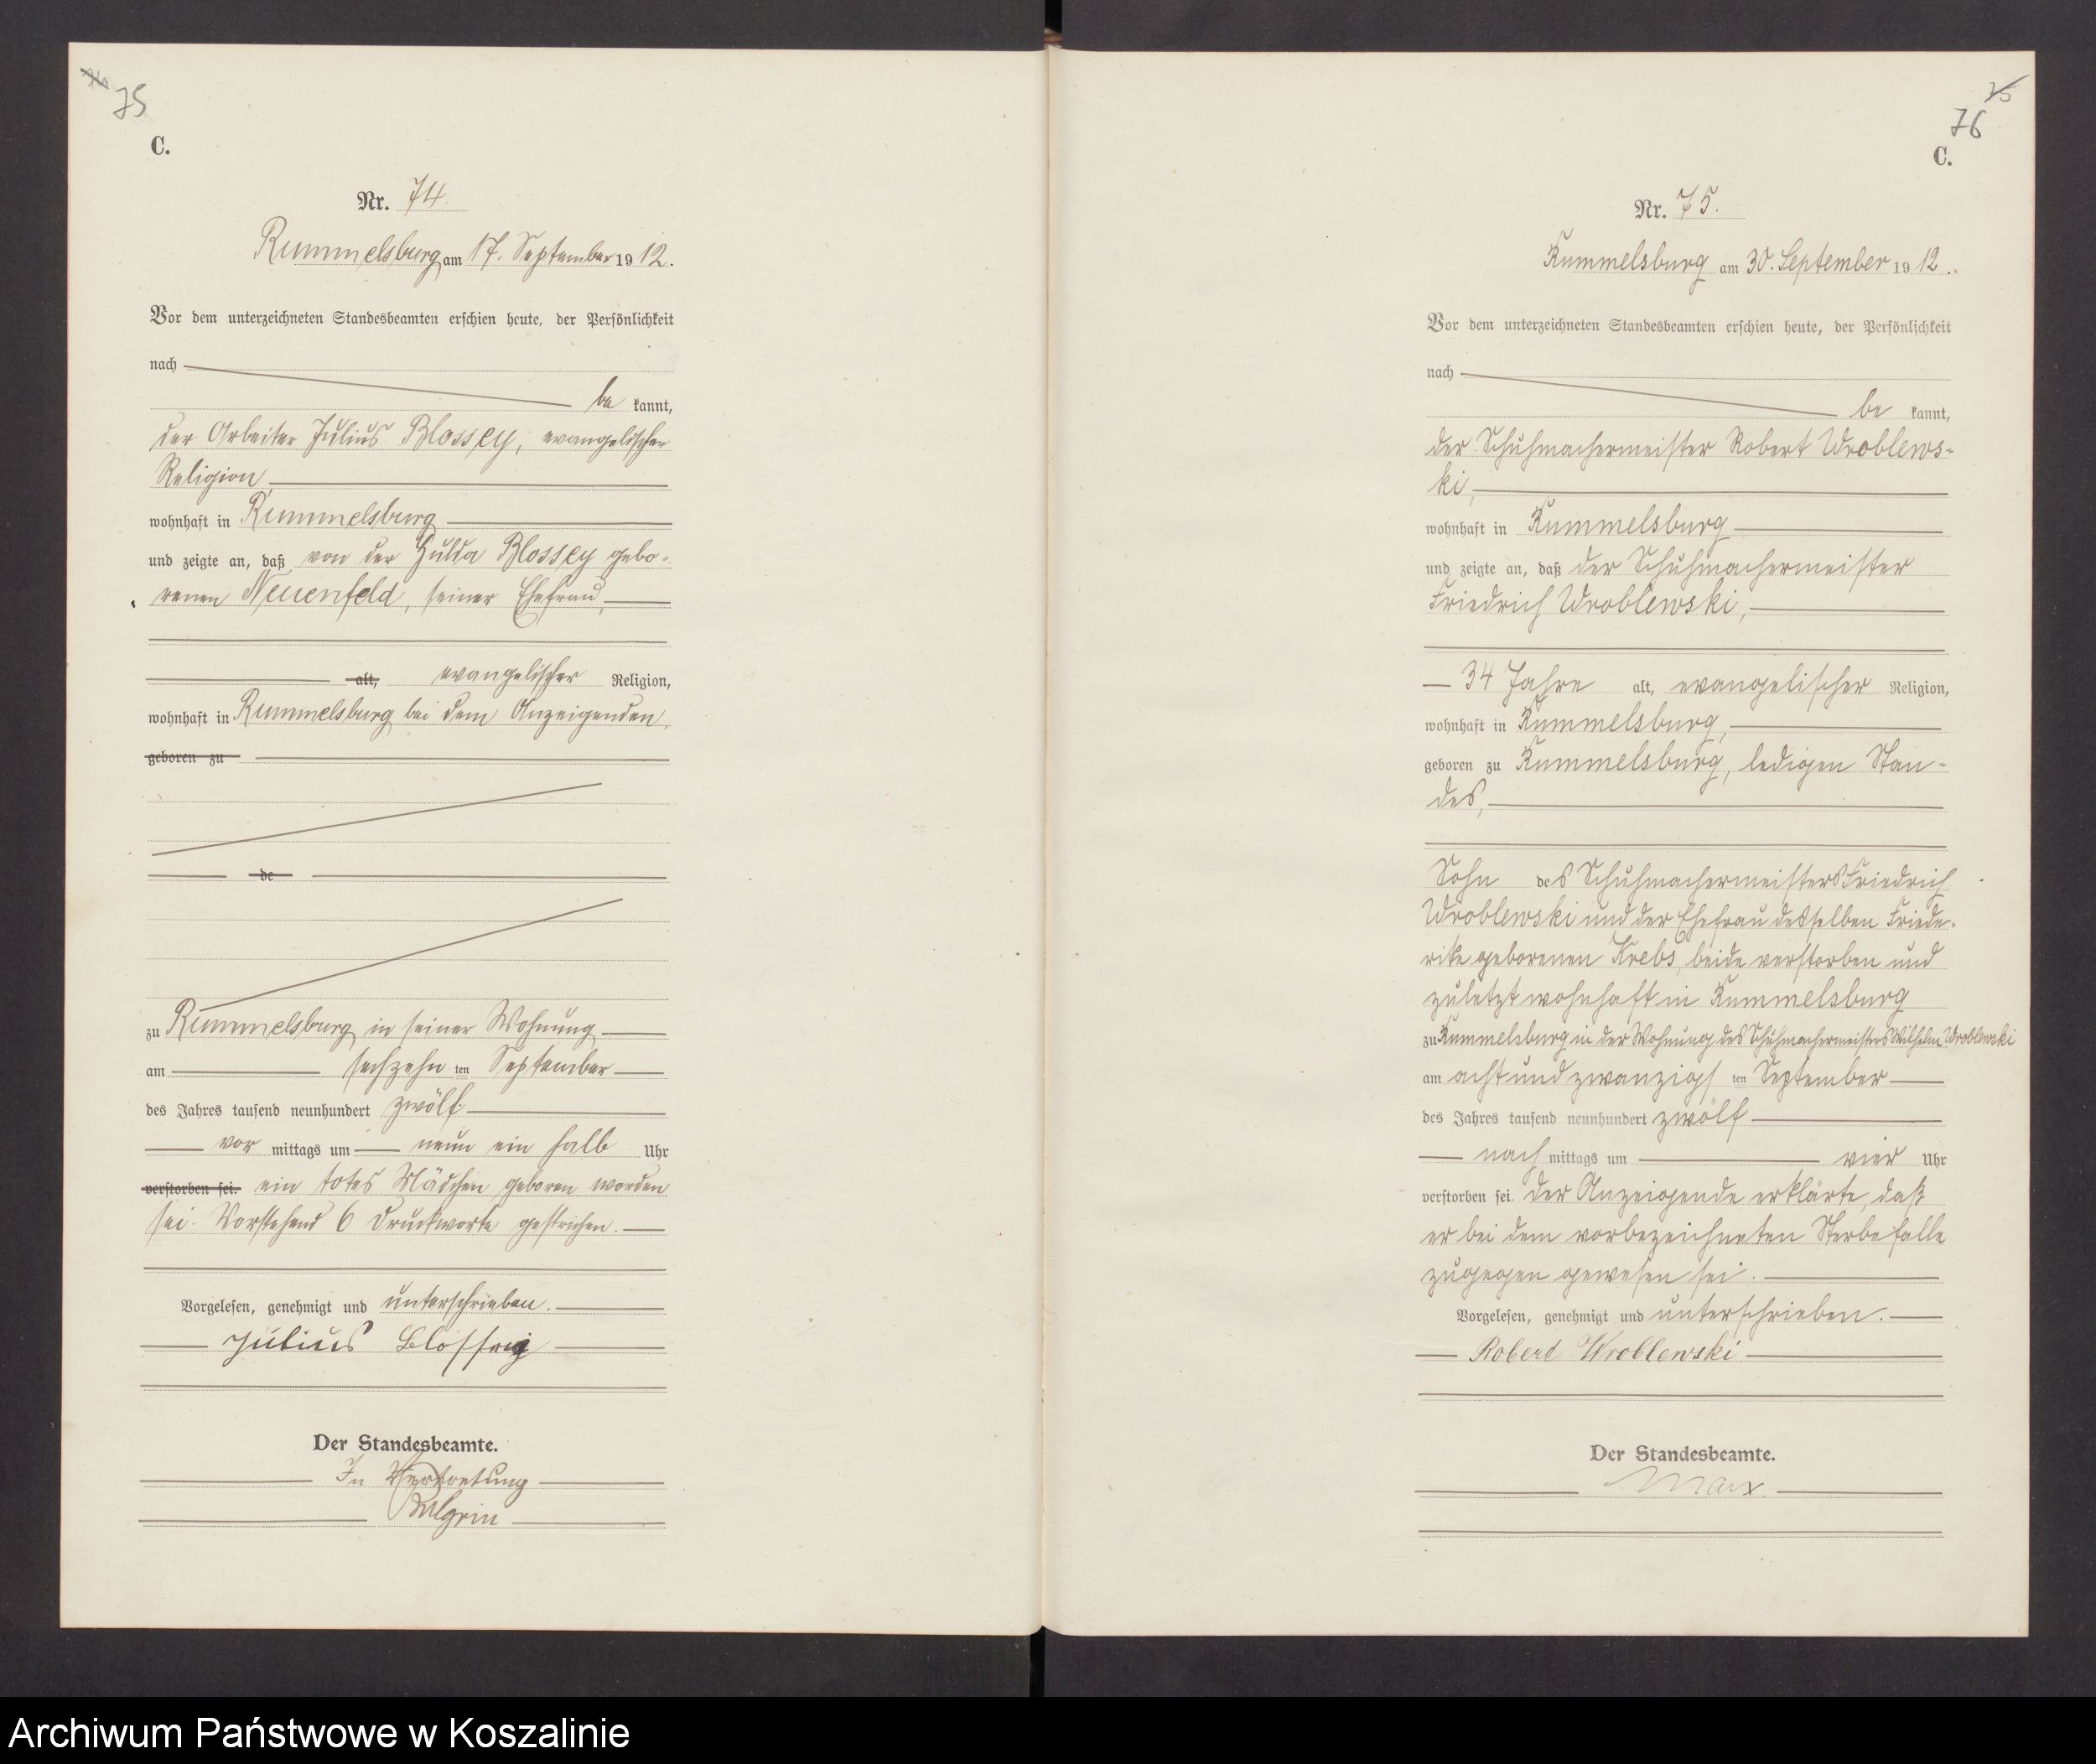 75
C.
Nr. 74.
Rummelsburg am 17. September 1912.
Vor dem unterzeichneten Standesbeamten erschien heute, der Persönlichkeit
nach
be kannt,
der Arbeiter Julius Blossey, evangelischer
Religion,
wohnhaft in Rummelsburg
und zeigte an, daß von der Hulda Blossey gebo-
renen Neuenfeld, seiner Ehefrau,
alt, evangelischer Religion,
wohnhaft in Rummelsburg bei dem Anzeigenden,
geboren zu
de
zu Rummelsburg in seiner Wohnung
am sechzehn ten September
des Jahres tausend neunhundert zwölf
vor mittags um neun ein halb Uhr
verstorben sei. ein totes Mädchen geboren worden
sei. Vorstehend 6 Druckworte gestrichen.
Vorgelesen, genehmigt und unterschrieben.
Julius Blossey
Der Standesbeamte.
In Vertretung
75
76
C.
Nr. 75.
Rummelsburg am 30. September 1912.
Vor dem unterzeichneten Standesbeamten erschien heute, der Persönlichkeit
nach
be kannt,
der Schuhmachermeister Robert Wroblews-
ki,
wohnhaft in Rummelsburg
und zeigte an, daß der Schuhmachermeister
Friedrich Wroblewski,
34 Jahre alt, evangelischer Religion,
wohnhaft in Rummelsburg,
geboren zu Rummelsburg, ledigen Stan-
des,
Sohn des Schuhmachermeisters Friedrich
Wroblewski und der Ehefrau desselben Friede-
rike geborenen Krebs, beide verstorben und
zuletzt wohnhaft in Rummelsburg
zu Rummelsburg in der Wohnung des Schuhmachermeisters Wilhelm Wroblewski
am achtundzwanzigs ten September
des Jahres tausend neunhundert zwölf
nach mittags um vier Uhr
verstorben sei. Der Anzeigende erklärte, daß
er bei dem vorbezeichneten Sterbefalle
zugegen gewesen sei.
Vorgelesen, genehmigt und unterschrieben.
Robert Wroblewski
Der Standesbeamte.
Marx.
Archiwum Państwowe w Koszalinie